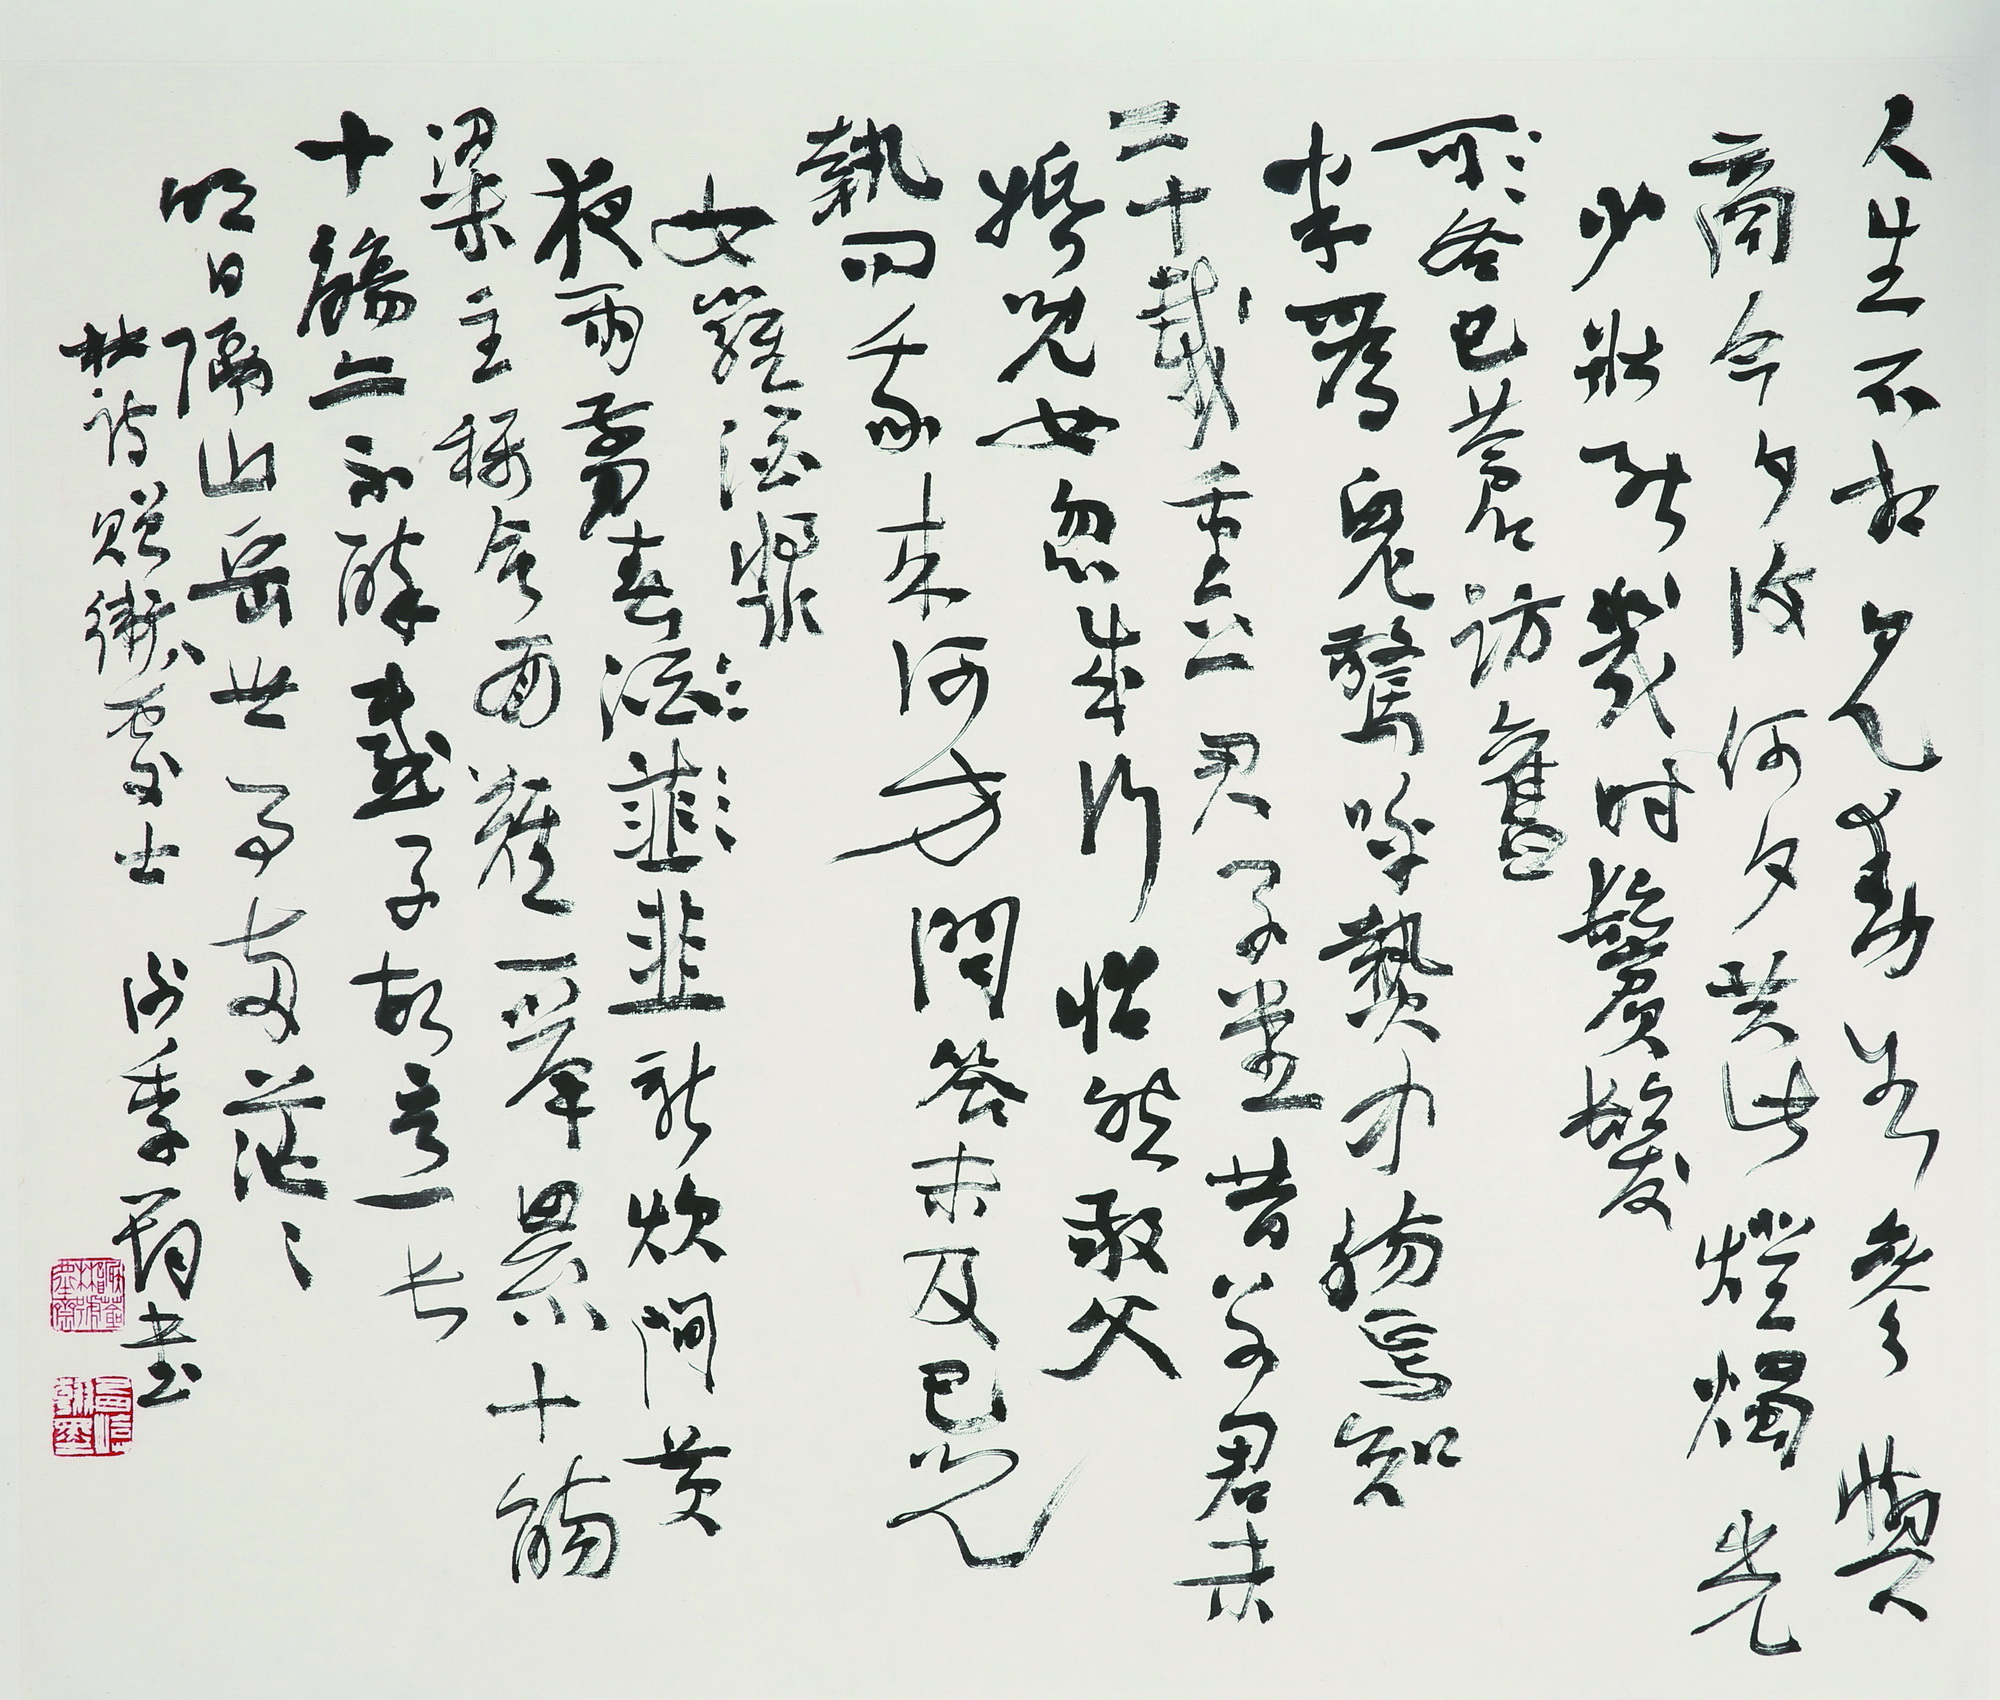 人生不相見動如參與
商今夕復何夕共此燈燭光
少壯能幾時鬢髮
各已蒼訪舊
半為鬼驚呼熱中腸焉知
二十載重上君子堂昔別君未
婚兒女忽成行怡然敬父
執問我來何方問答未及已兒
女羅酒漿
夜雨剪春酒韭韭新炊間黃
粱主稱會面難一舉累十觴
十觴亦不醉感子故意長
明日隔山岳世事兩茫〻
杜詩贈衛八處士 季書